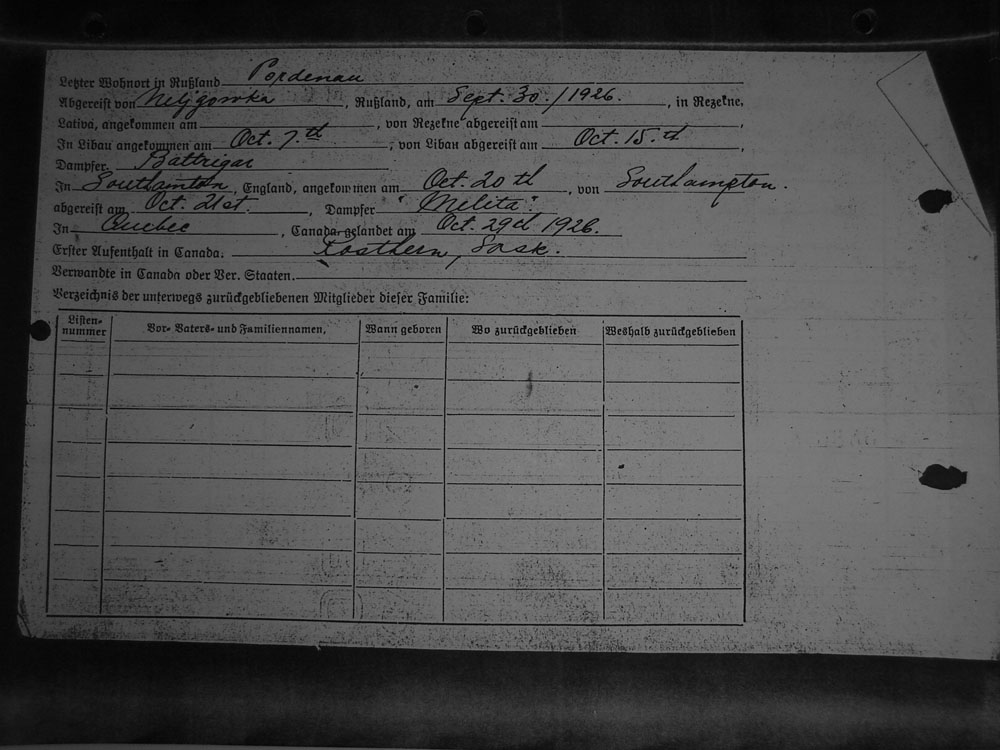 Letzter Wohnort in Rußland Pordenau
Abgereist von Neljgowka, Rußland, am Sept. 30./1926., in Rezekne,
Lativa, angekommen am , von Rezekne abgereist am ,
In Libau angekommen am Oct. 7.th , von Libau abgereist am Oct. 15.th ,
Dampfer. Battrigar
In Southamton, England, angekommen am Oct. 20 th , von Southampton.
abgereist am Oct. 21st. , Dampfer "Melita".
In Quebec , Canada gelandet am Oct. 29d 1926.
Erster Aufenthalt in Canada. Rosthern, Sask.
Verwandte in Canada oder Ver. Staaten.
Verzeichnis der unterwegs zurückgebliebenen Mitglieder dieser Familie:
Listen-nummer Vor- Vaters- und Familiennamen, Wann geboren Wo zurückgeblieben Weshalb zurückgeblieben